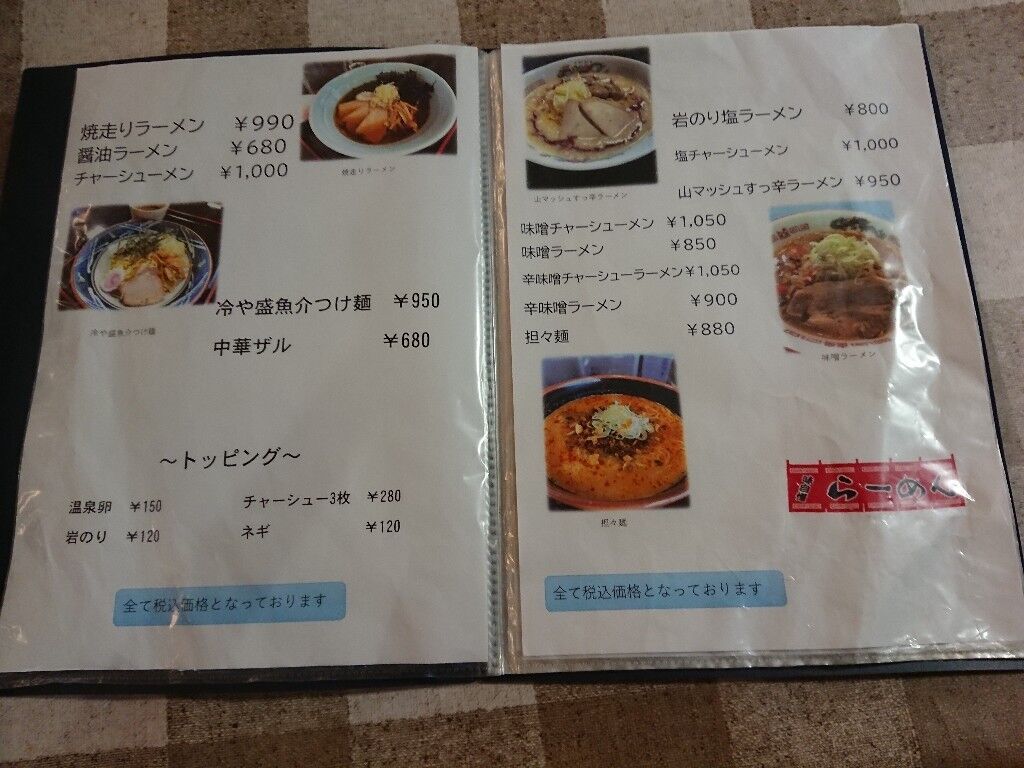 焼走りラーメン ￥990
醤油ラーメン ￥680
チャーシューメン ￥1,000
焼走りラーメン
冷や盛魚介つけ麺
冷や盛魚介つけ麺 ￥950
中華ザル ￥680
～トッピング～
温泉卵 ￥150 チャーシュー3枚 ￥280
岩のり ￥120 ネギ ￥120
全て税込価格となっております
山マッシュすっ辛ラーメン
岩のり塩ラーメン ￥800
塩チャーシューメン ￥1,000
山マッシュすっ辛ラーメン ￥950
味噌チャーシューメン ￥1,050
味噌ラーメン ￥850
辛味噌チャーシューラーメン￥1,050
辛味噌ラーメン ￥900
担々麺 ￥880
味噌ラーメン
担々麺
らーめん
全て税込価格となっております